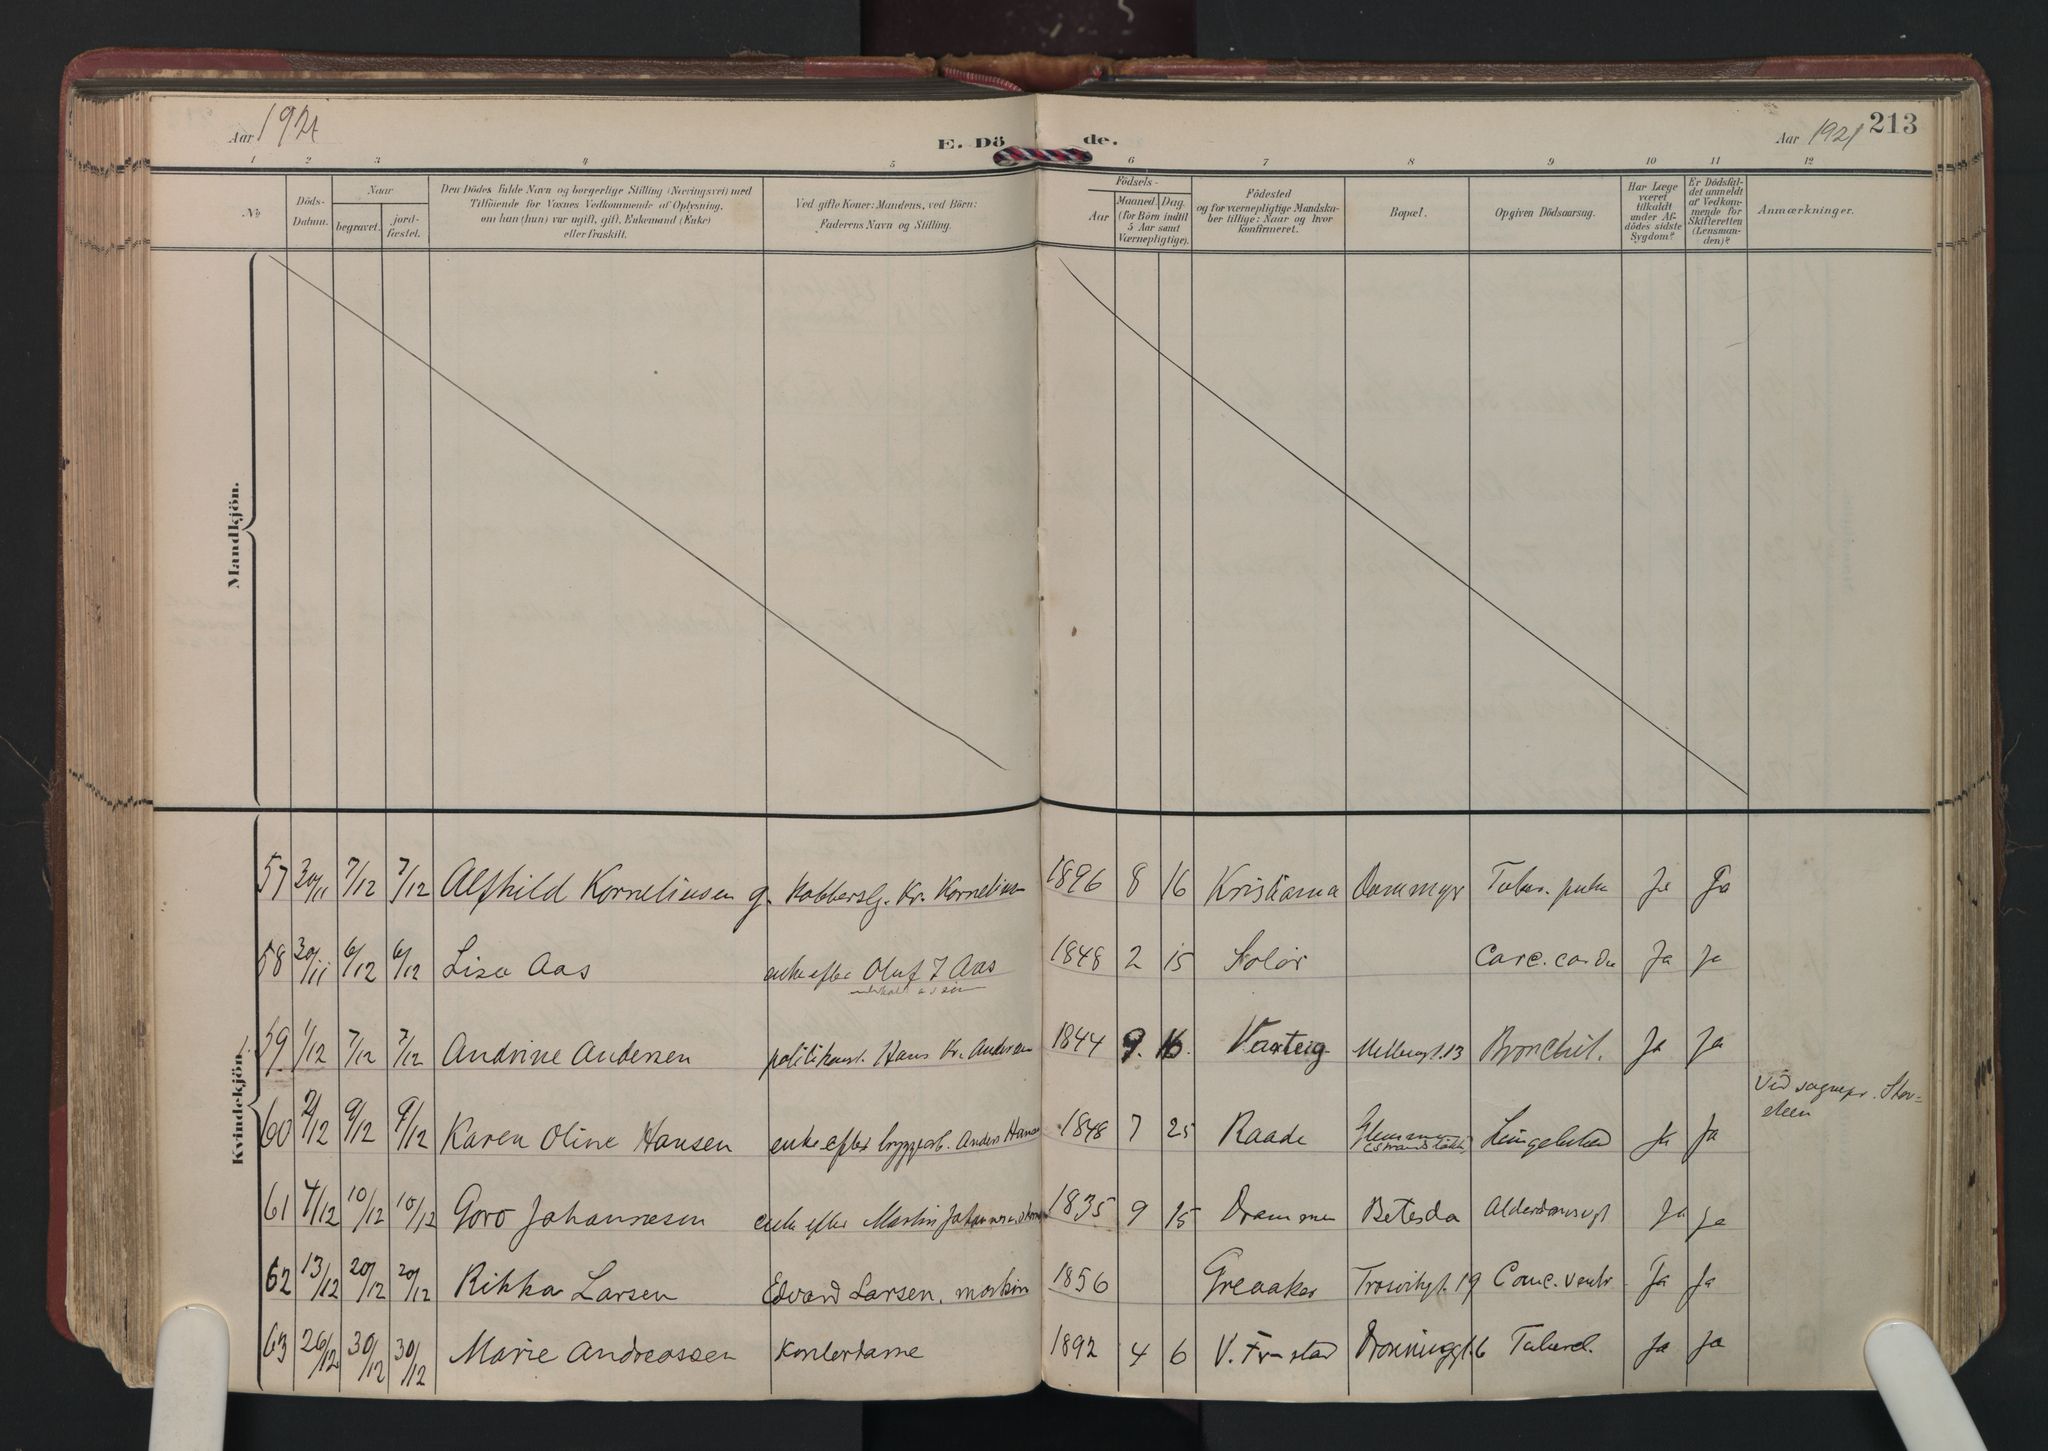 Aar 1921
E. Döde.
Aar 1921
213
1 2 3 4 5 6 7 8 9 10 11 12
No
Döds-
Datum.
Naar
begravet.
jord-
fæstet.
Den Dödes fulde Navn og borgerlige Stilling (Næringsvei) med
Tilföiende for Voxnes Vedkommende af Oplysning,
om han (hun) var ugift, gift, Enkemand (Enke)
eller fraskilt.
Ved gifte Koner: Mandens, ved Börn:
Faderens Navn og Stilling.
Födsels-
Aar
Maaned. Dag.
(for Börn indtil
5 Aar samt
Værnepligtige).
Födested
og for værnepligtige Mandska-
ber tillige: Naar og hvor
konfirmeret.
Bopæl.
Opgiven Dödsaarsag.
Har Læge
været
tilkaldt
under Af-
dödes sidste
Sygdom?
Er Dödsfal-
det anmeldt
af Vedkom-
mende for
Skifteretten
(Lensman-
den)?
Anmærkninger.
Mandkjön.
Kvindekjön.
57 30/11 7/12 7/12 Alfhild Korneliusen g. Kobberslg. Kr. Kornelius 1896 8 16 Kristiania Dammyr Ja Ja
58 30/11 6/12 6/12 Lisa Aas enke efter Olaf J Aas 1848 2 15 Solör Carc. cardia Ja Ja
59 1/12 7/12 7/12 Andrine Andersen politikonst. Hans Kr. Andersen 1844 9. 16. Varteig 13 Bronchit. Ja Ja
60 2/12 9/12 9/12 Karen Oline Hansen enke efter bryggearb. Anders Hansen 1848 7 25 Raade Glemmen Ja Ja Ved sognepr. Stor-
steen
61 4/12 10/12 10/12 Goro Johannesen enke efter Martin Johannesen 1835 9 15 Drammen Betesda Alderdomssvgt Ja Ja
62 13/12 20/12 20/12 Rikka Larsen Edvard Larsen, maskin 1856 Greaaker Trosvikgt. 19 Canc. ventr. Ja Ja
63 26/12 30/12 30/12 Marie Andreassen Kontordame 1892 4 6 V. Fr.stad Dronninggt. 6 Tuberd. Ja Ja